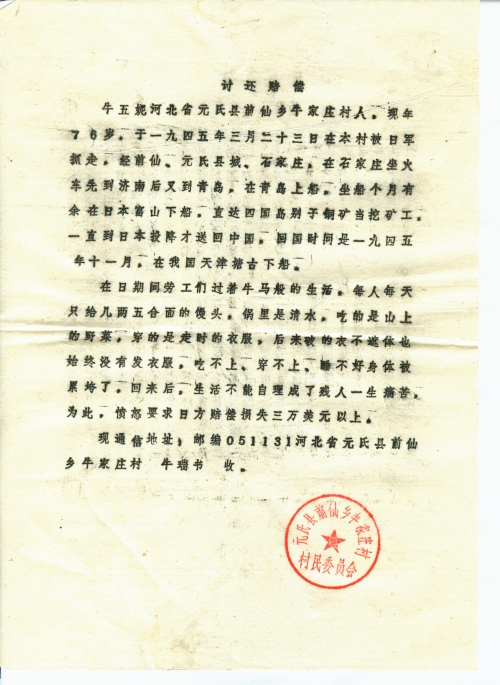 讨还赔偿
牛五妮河北省元氏县前仙乡牛家庄村人。现年
76岁。于一九四五年三月二十三日在本村被日军
抓走。经前仙、元氏县城、石家庄。在石家庄坐火
车先到济南后又到青岛。在青岛上船。坐船个月有
余在日本富山下船。直达四国岛别子铜矿当挖矿工。
一直到日本投降才送回中国。回国时间是一九四五
年十一月。在我国天津塘古下船。
在日期间劳工们过着牛马般的生活。每人每天
只给几两五合面的馒头。锅里是清水。吃的是山上
的野菜。穿的是走时的衣服。后来破的衣不遮体也
始终没有发衣服。吃不上、穿不上、睡不好身体被
累垮了。回来后。生活不能自理成了残人一生痛苦。
为此，愤怒要求日方赔偿损失三万美元以上。
现通信地址：邮编051131河北省元氏县前仙
乡牛家庄村 牛瑞书 收。
元氏县前仙乡牛家庄村
村民委员会